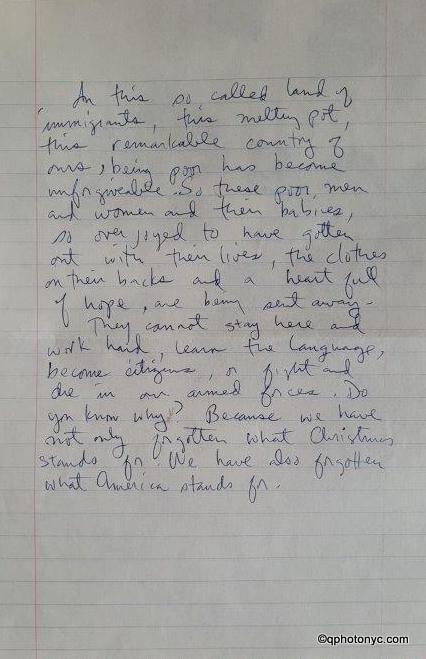 In this so called land of
immigrants, this melting pot,
this remarkable country of
ours, being poor has become
unforgiveable. So these poor, men
and women and their babies,
so over joyed to have gotten
out with their lives, the clothes
on their backs and a heart full
of hope, are being sent away.
They cannot stay here and
work hard, learn the language,
become citizens, or fight and
die in our armed forces. Do
you know why? Because we have
not only forgotten what Christmas
stands for. We have also forgotten
what America stands for.
©qphotonyc.com